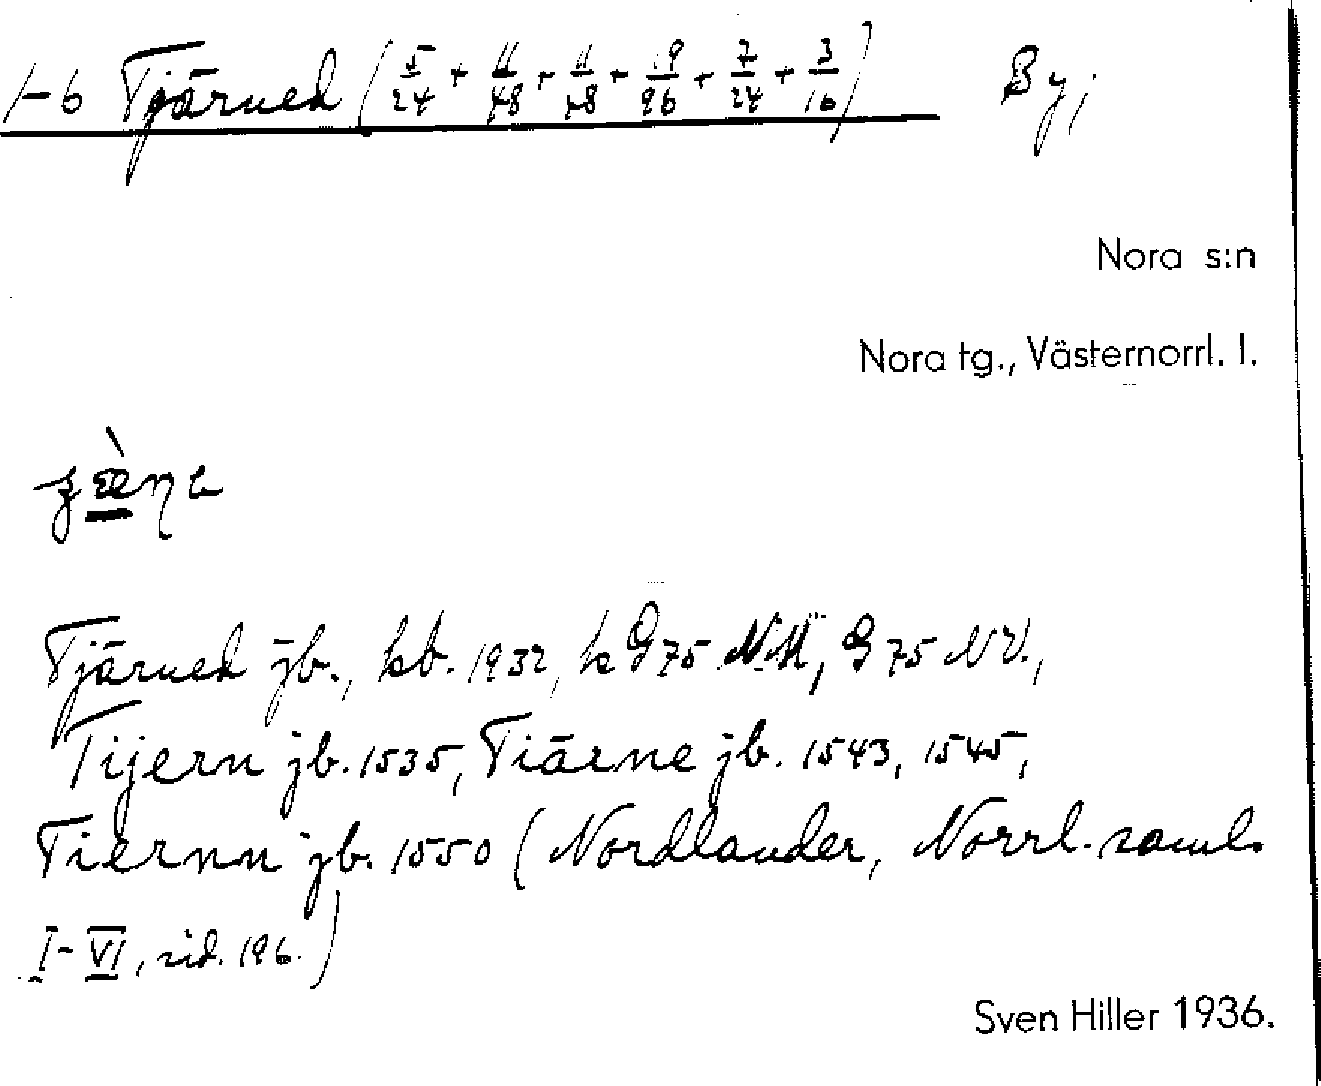 1-6 Tjärned (5/24 + 11/48 + 11/48 + 19/96 + 7/24 + 3/16) By;
Nora s:n
Nora tg., Västernorrl. l.
Tjärned jb., kb. 1932, k G 75 NV.,
Tijern jb. 1535, Tiärne jb. 1543, 1545,
Tiernn jb. 1550 (Nordlander, Norrl. saml.
I-VI, sid. 196.)
Sven Hiller 1936.